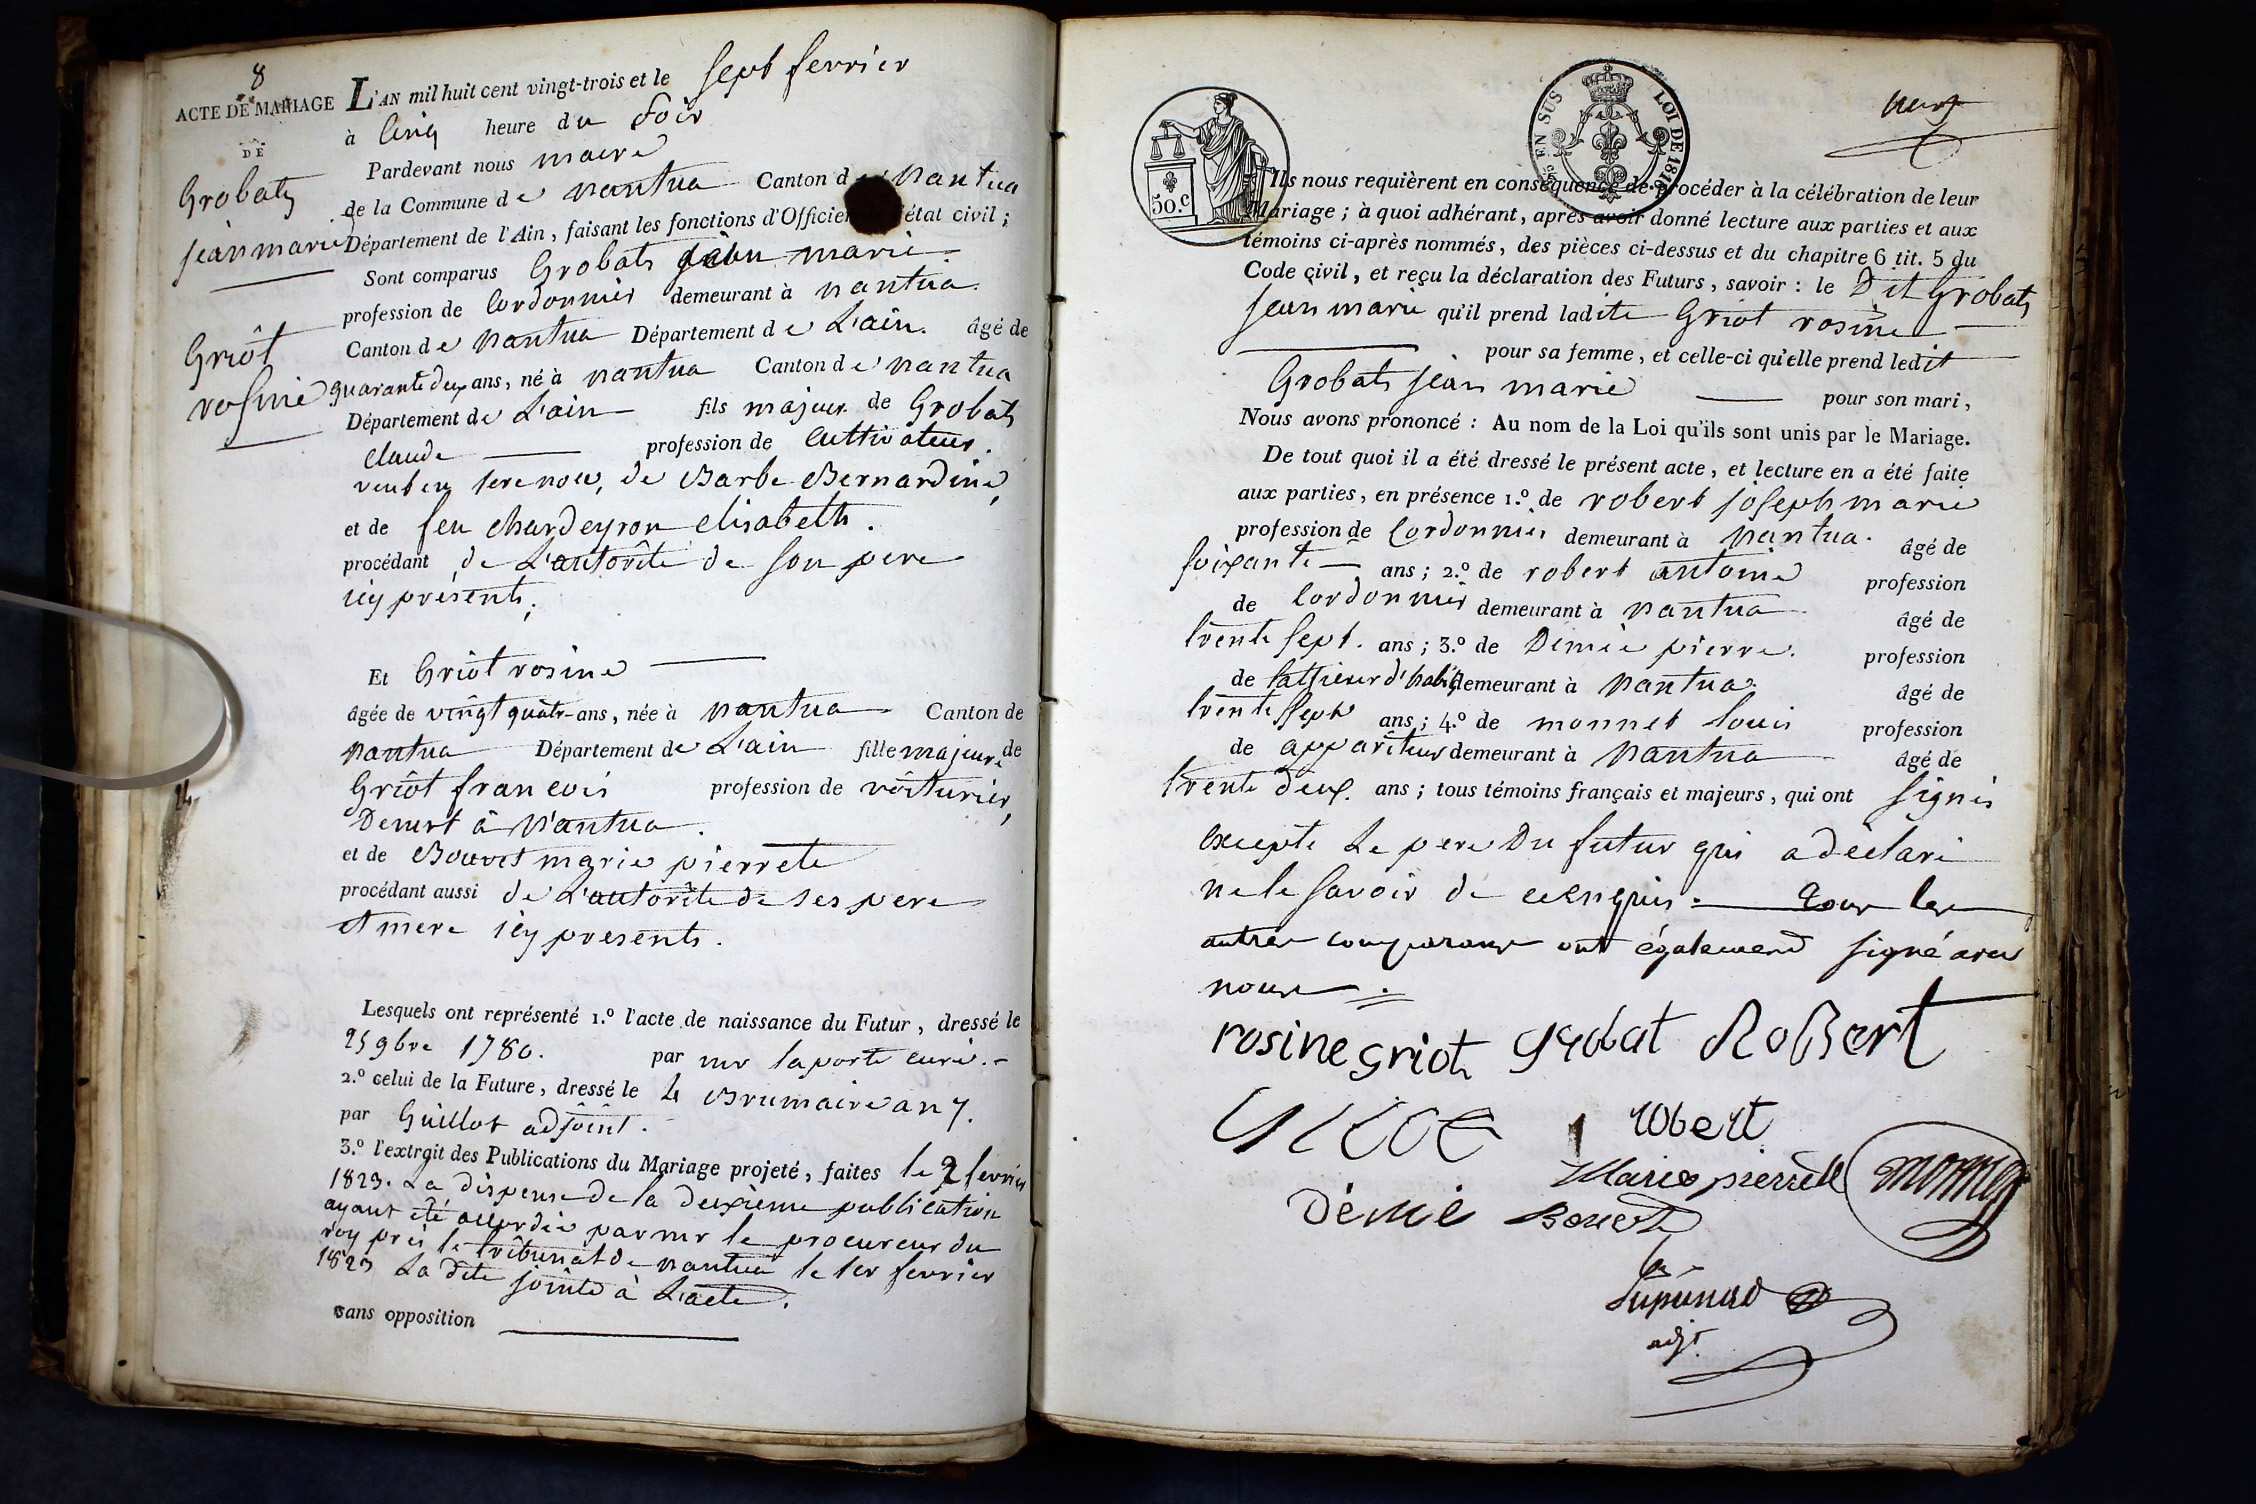 8
ACTE DE MARIAGE
DE
Grobats
jean marie
Griot
rosine
L'AN mil huit cent vingt-trois et le sept fevrier
à Cinq heure du Soir
Pardevant nous maire
de la Commune de nantua Canton de nantua
Département de l'Ain, faisant les fonctions d'Officier état civil;
Sont comparus Grobats jean marie
profession de Cordonnier demeurant à nantua
Canton de nantua Département de L'ain. âgé de
quarante deux ans, né à nantua Canton de nantua
Département de L'ain fils majeur de Grobats
Claude profession de Cultivateur.
veuf en noce, de Barbe Bernardine,
et de feu Chardeyron elisabeth.
procédant de L'autorité de son pere
icy présents,
Et Griot rosine
âgée de vingt quatre ans, née à nantua Canton de
nantua Département de L'ain fille majeure de
Griot francois profession de voiturier,
Demert à Nantua.
et de Bouvet marie pierrete
procédant aussi de L'autorité de ses pere
et mere icy presents.
Lesquels ont représenté 1.º l'acte de naissance du Futur, dressé le
25 9bre 1780. par mr laporte curé.
2.º celui de la Future, dressé le 4 Brumaire an 7.
par Guillot adjoint.
3.º l'extrait des Publications du Mariage projeté, faites le 2 fevrier
1823. La dispense de la deuxieme publication
ayant été accordée par mr le procureur du
roy près le tribunal de nantua le 1er fevrier
1823 La dite jointe à L'acte.
sans opposition
50.c
EN SUS
LOI DE 1816
neuf
Ils nous requièrent en conséquence de procéder à la célébration de leur
Mariage; à quoi adhérant, après avoir donné lecture aux parties et aux
témoins ci-après nommés, des pièces ci-dessus et du chapitre 6 tit. 5 du
Code civil, et reçu la déclaration des Futurs, savoir: le Dit Grobats
jean marie qu'il prend ladite Griot rosine
pour sa femme, et celle-ci qu'elle prend ledit
Grobats jean marie pour son mari,
Nous avons prononcé: Au nom de la Loi qu'ils sont unis par le Mariage.
De tout quoi il a été dressé le présent acte, et lecture en a été faite
aux parties, en présence 1.º de robert joseph marie
profession de Cordonnier demeurant à nantua. âgé de
soixante ans; 2.º de robert antoine profession
de Cordonnier demeurant à nantua âgé de
trente sept. ans; 3.º de Démié pierre. profession
de tailleur d'habits demeurant à nantua. âgé de
trente sept ans; 4.º de monnet louis profession
de appariteur demeurant à nantua âgé de
trente deux. ans; tous témoins français et majeurs, qui ont signés
excepte Le pere Du futur qui a déclaré
ne le savoir de ce enquis. tous les
autres comparans ont également signé avec
nous.
rosine griot grobat RoBert
robert
Marie pierrette
Bouvet
Démié
monnet
adjt